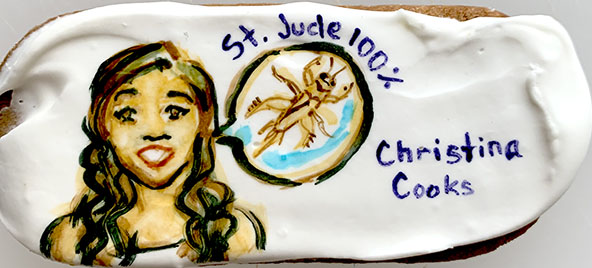 St. Jude 100%
Christina
Cooks